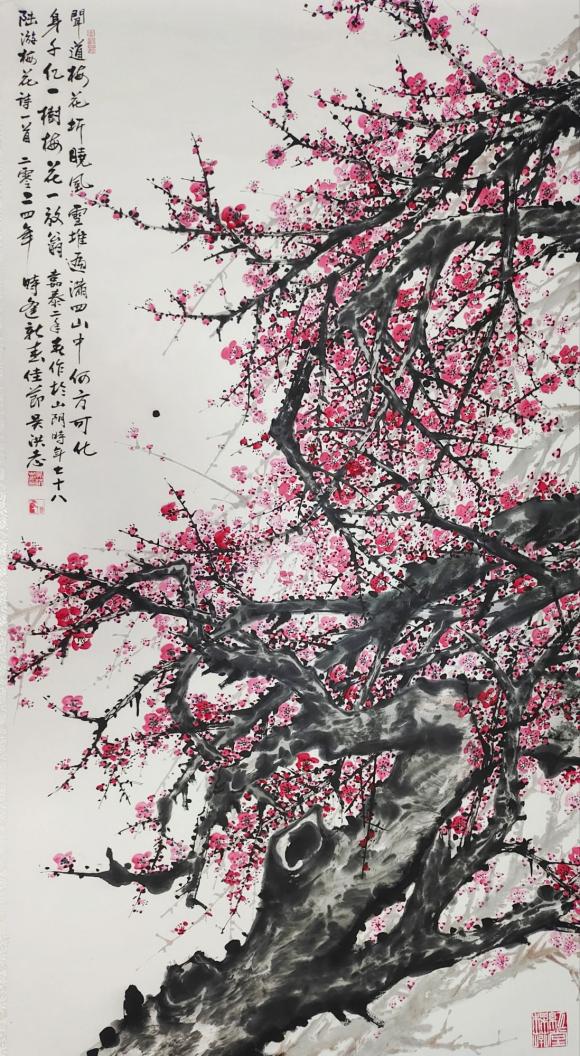 聞道梅花坼曉風雪堆遍滿四山中何方可化
身千億一樹梅花一放翁嘉泰二年春作於山陰時年七十八
陸游梅花詩一首二零二四年時逢新春佳節吳洪志